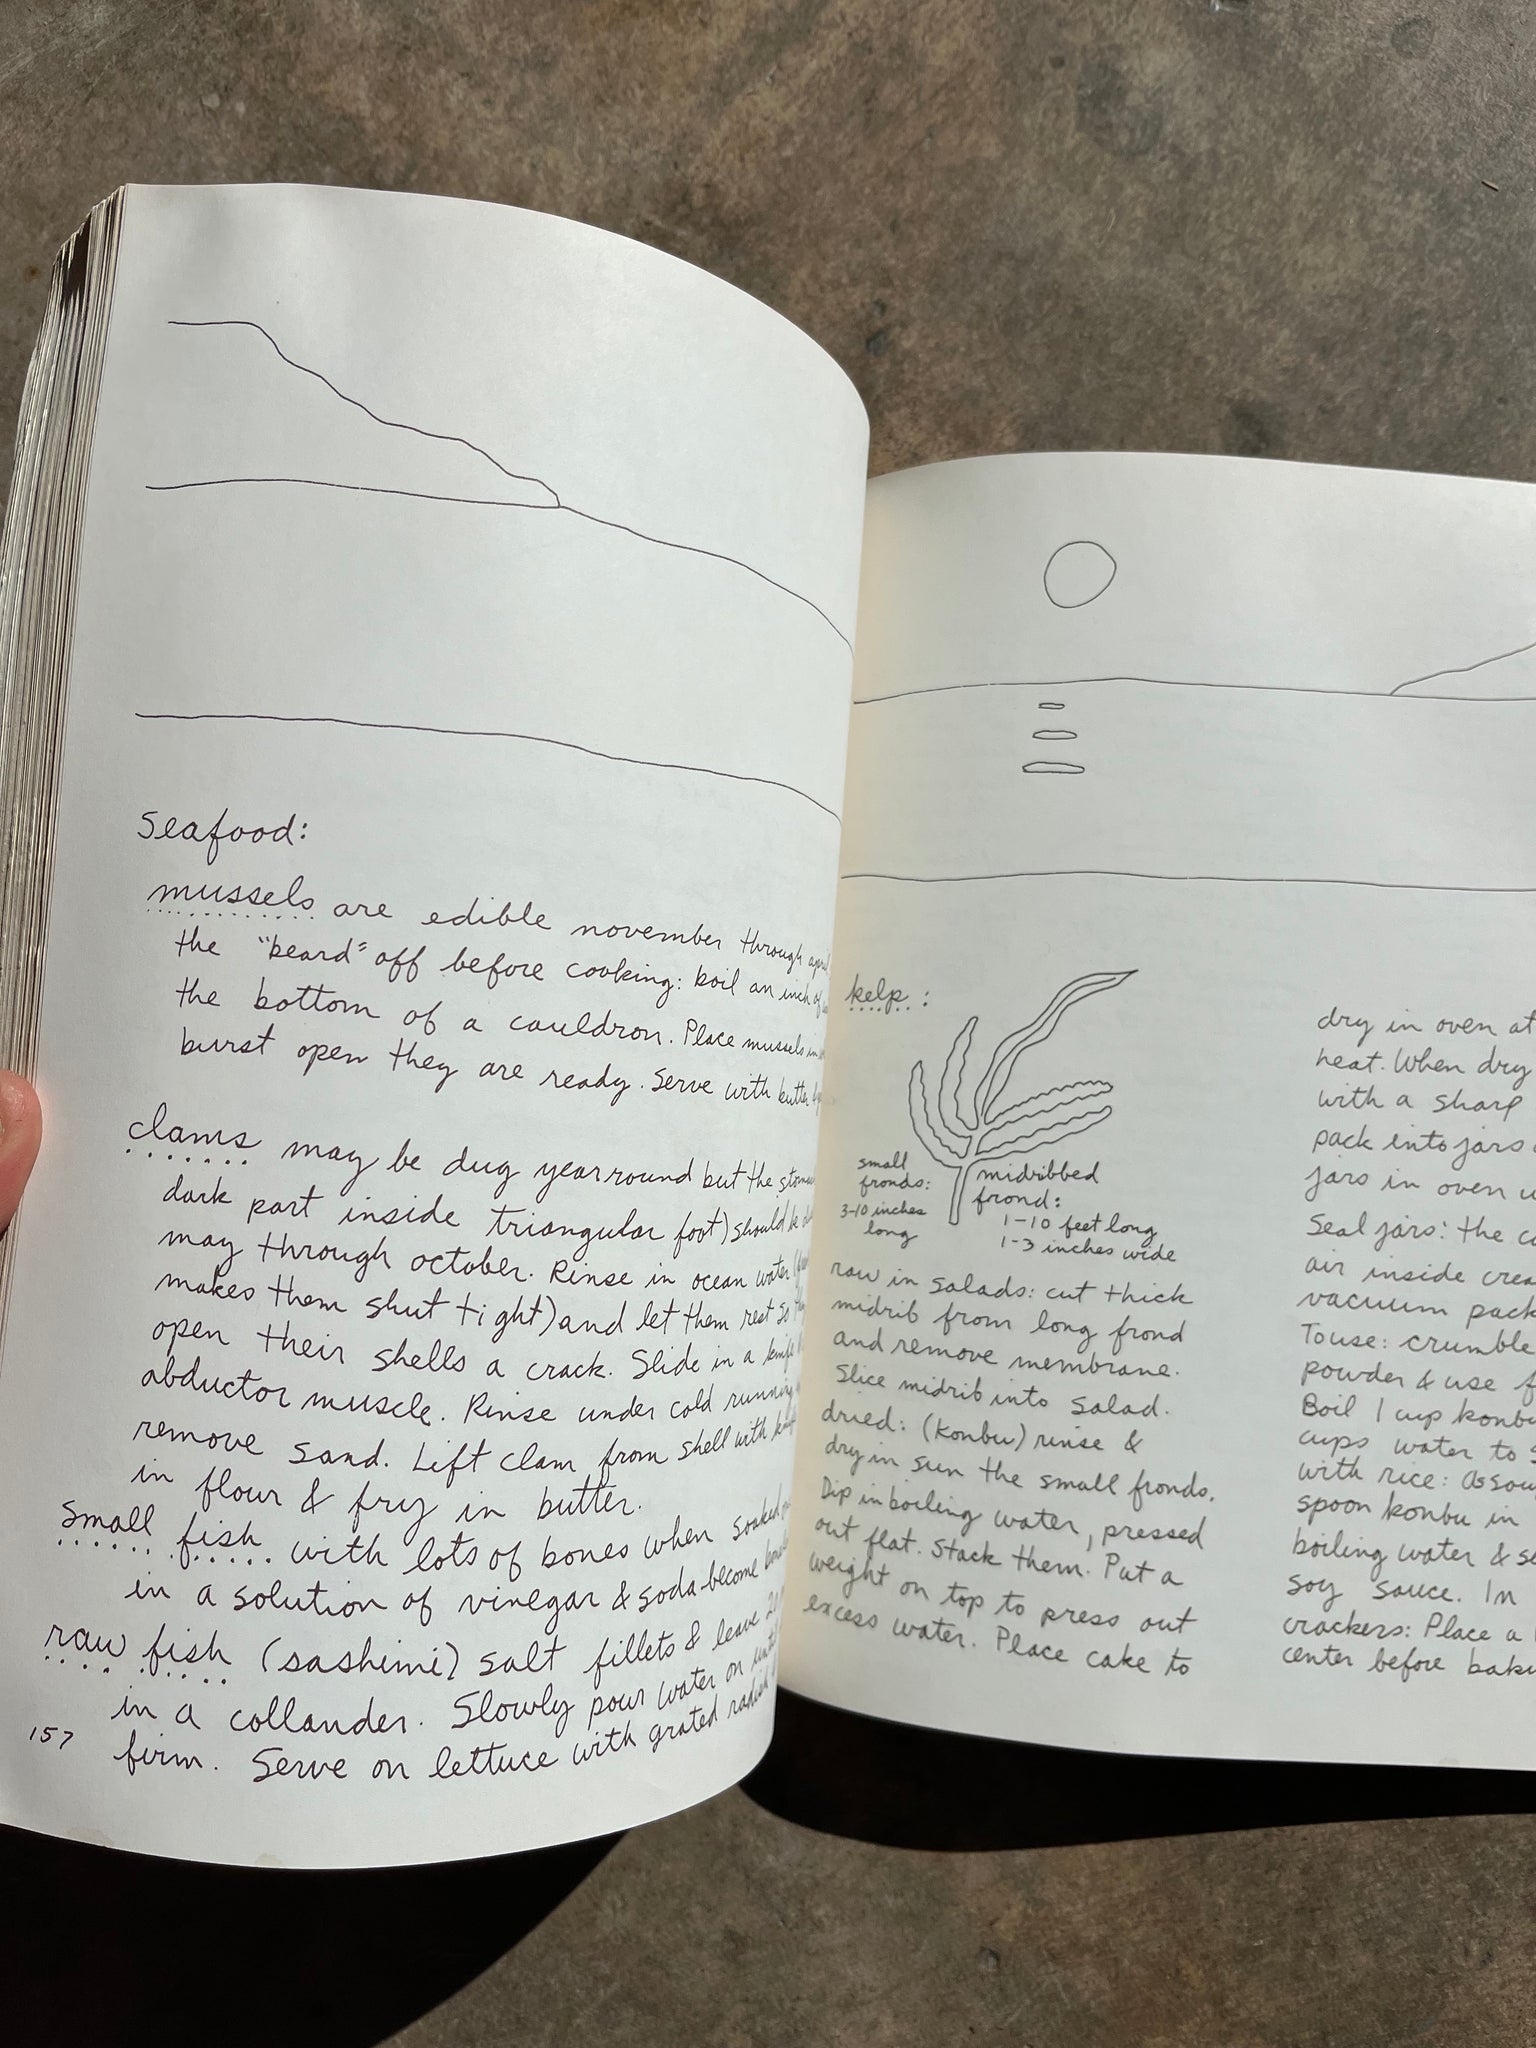 seafood:
mussels are edible november through april
the "beard" off before cooking: boil an inch of
the bottom of a cauldron. Place mussels in
burst open they are ready. Serve with butter
clams may be dug year round but the
dark part inside triangular foot) should be
may through october. Rinse in ocean water
makes them shut tight) and let them rest so
open their shells a crack. Slide in a knife
abductor muscle. Rinse under cold running
remove sand. Lift clam from shell with
in flour & fry in butter.
small fish with lots of bones when soaked
in a solution of vinegar & soda become
raw fish (sashimi) salt fillets & leave
in a collander. Slowly pour water on until
firm. Serve on lettuce with grated radish
157
kelp:
small
fronds:
3-10 inches
long
midribbed
frond:
1-10 feet long
1-3 inches wide
raw in salads: cut thick
midrib from long frond
and remove membrane.
Slice midrib into salad.
dried: (konbu) rinse &
dry in sun the small fronds.
Dip in boiling water, pressed
out flat. Stack them. Put a
weight on top to press out
excess water. Place cake to
dry in oven at
heat. When dry
with a sharp
pack into jars
jars in oven
Seal jars: the
air inside
vacuum pack
To use: crumble
powder & use
Boil 1 cup konbu
cups water to
with rice:
spoon konbu in
boiling water &
soy sauce. In
crackers: Place a
center before